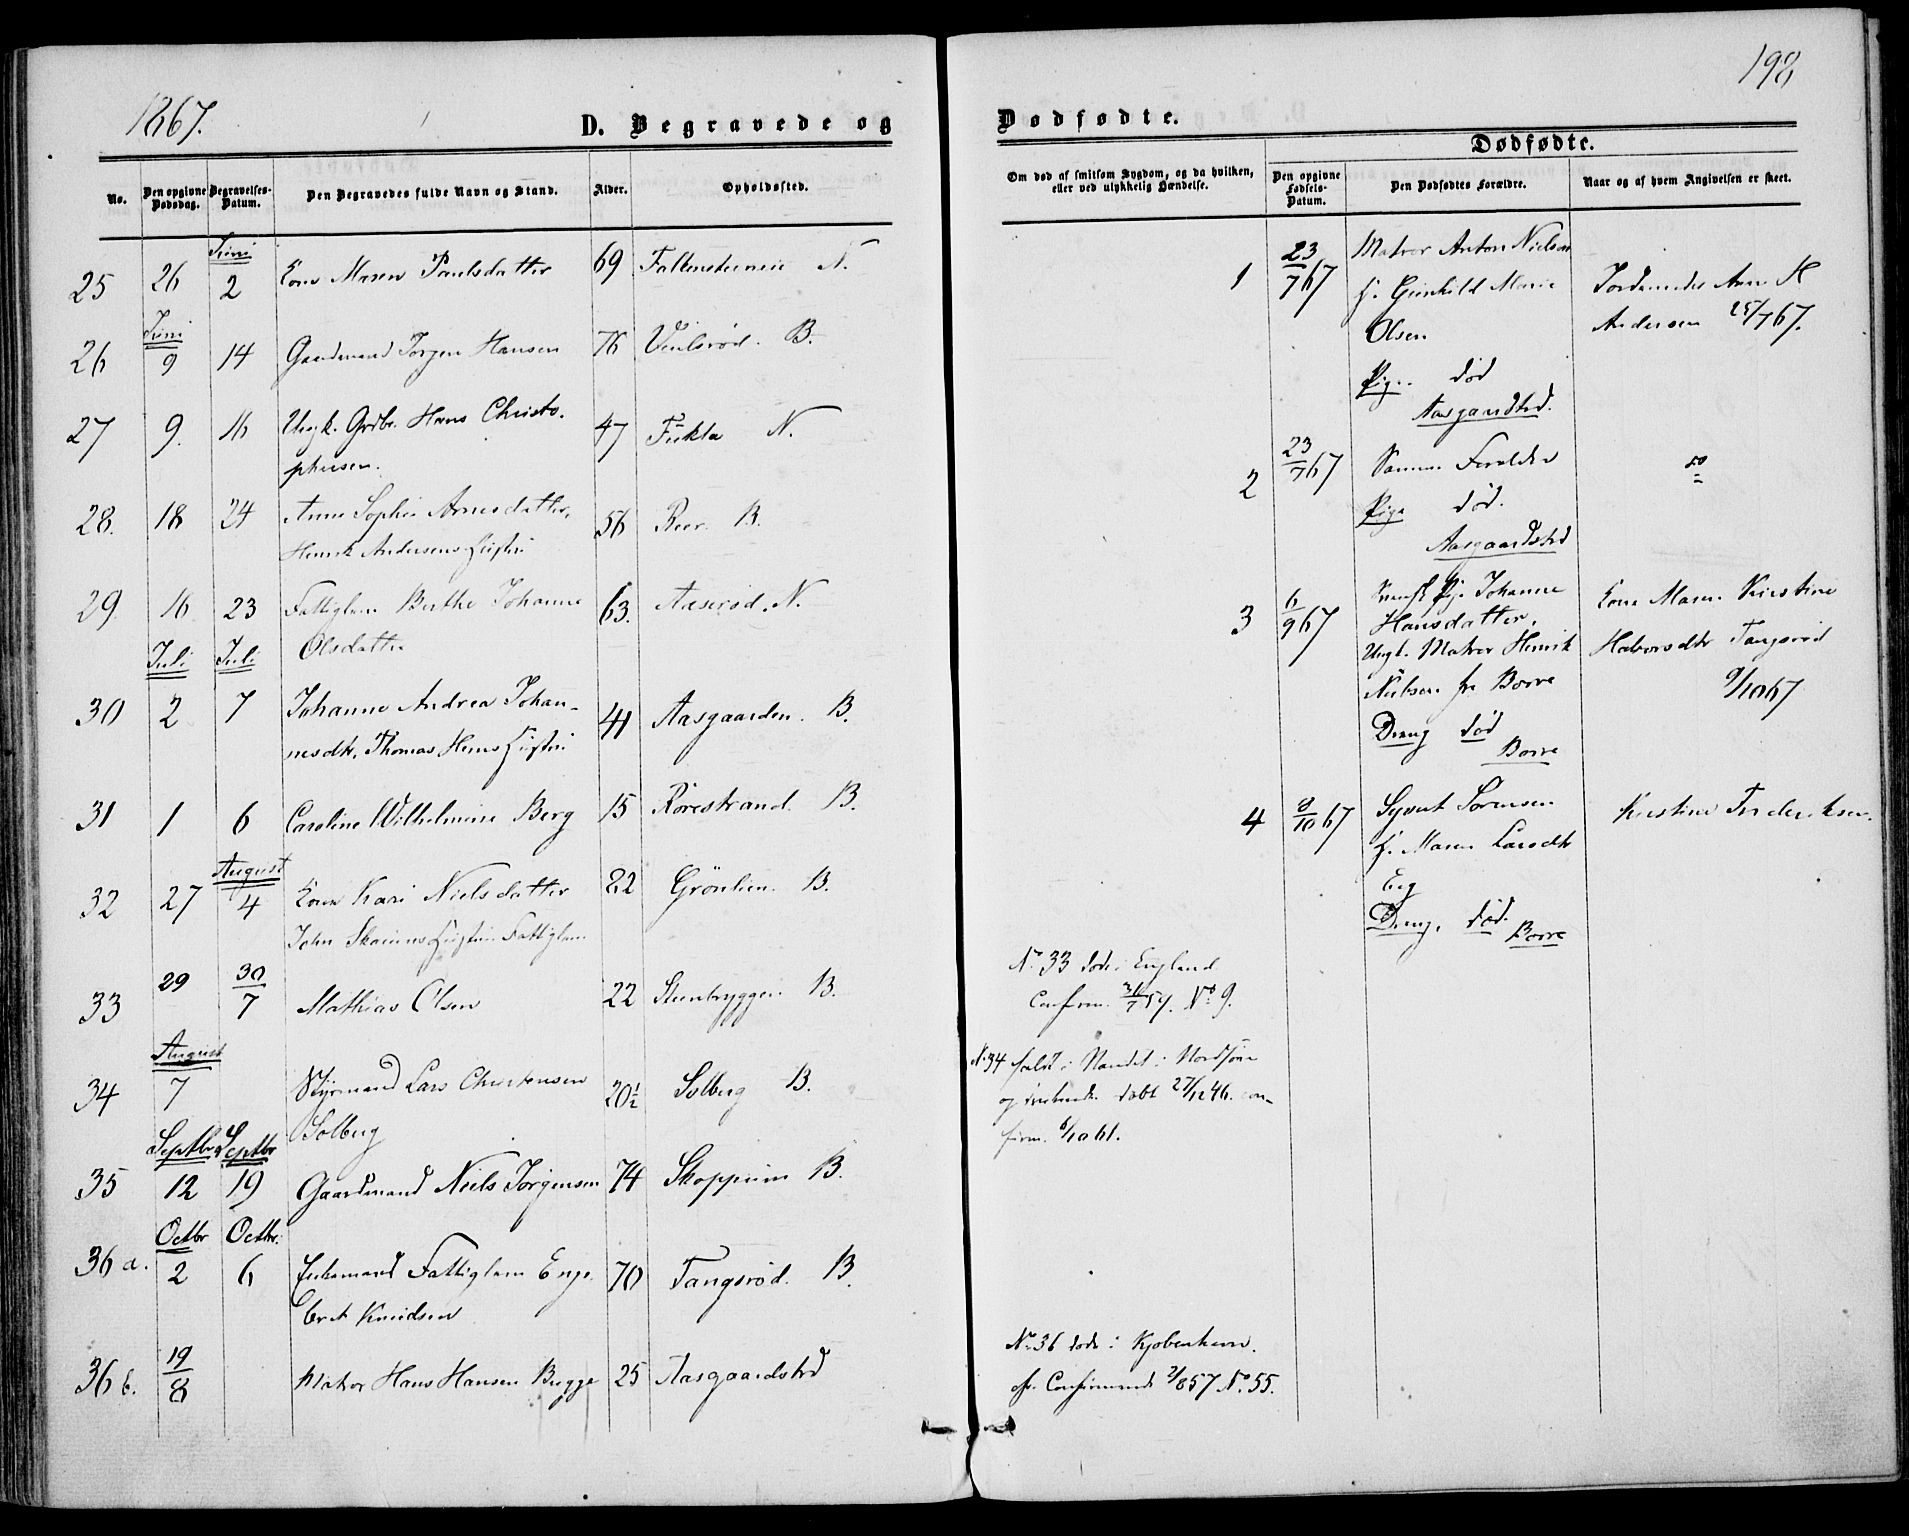 1867.
D. Begravede og
No.
Den opgivne Dødsdag.
Begravelses-Datum.
Den Begravedes fulde Navn og Stand.
Alder.
Opholdssted.
Juni
25 26 2 Kone Maren Paulsdatter 69 N.
Juni
26 9 14 Gaardmand Jørgen Hansen 76 B.
27 9. 16 Ungk. Hans Christo-
phersen. 47 N.
28. 18 24 Anne Sophie Arnesdatter, 56 B.
Henrik Andersens
29. 16 23 Fattiglem Berthe Johanne 63. Aaserød. N.
Olsdatter
Juli Juli
30 2 7 Johanne Andrea Johan- 41 Aasgaarden. B.
nesdtr. Thomas
31 1 6 Caroline Wilhelmine Berg 15 Rørestrand. B.
August
32 27 4 Kone Kari Nielsdatter 82 Grönlien. B.
John Fattiglem
33 29 30/7 Mathias Olsen 22 Steenbryggen B.
August
34 7 Styrmand Lars Christensen 20½ Solberg B.
Solberg
Septbr Septbr
35 12 19 Gaardmand Niels Jørgensen 74 Skoppum B.
Octbr Octbr.
36 a. 2 6 Enkemand Fattiglem Enge- 70 Tangsrød. B.
bret Knudsen
36 b. 19/8 Matros Hans Hansen Bugge 25 Aasgaardstrd
198
Dødfødte.
Om død af smitsom Sygdom, og da hvilken,
eller ved ulykkelig Hændelse.
Dødfødte.
Den opgivne Fødsels-Datum.
Den Dødfødtes Forældre.
Naar og af hvem Angivelsen er skeet.
1 23/7 67 Matros Anton Nielsen
h. Gunhild Marie Jordemoder Anne K
Olsen Andersen 25/7 67.
Pige. død
Aasgaardstrd.
2 23/7 67 Samme Forældre do
Pige død.
Aasgaardstrd
3 6/9 67 Pge. Johanne Kone Maren Kirstine
Hansdatter, Halvorsdtr Tangsrød
Ungk. Matros Henrik
Nielsen fr Borre 9/10 67
Dreng død
Borre
4 9/10 67 Syvert Sørensen Kirstine Frederiksen.
h. Maren Larsdtr
Eeg
Dreng, død.
Borre
No 33 døde i England
Confirm. No 9.
N. 34 faldt i Vandet i Nordsøen
og druknede. døbt 27/12 46. con-
firm. 6/10 61.
No 36 døde i Kjøbenhavn.
Confirmerede 57 No. 55.